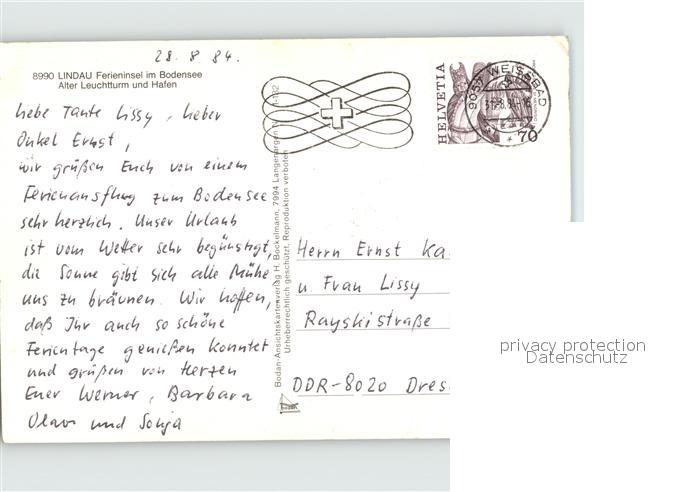 28.8.84.
8990 LINDAU Ferieninsel im Bodensee
Alter Leuchtturm und Hafen
Liebe Tante Lissy, lieber
Onkel Ernst,
wir grüßen Euch von einem
Ferienausflug zum Bodensee
sehr herzlich. Unser Urlaub
ist vom Wetter sehr begünstigt,
die Sonne gibt sich alle Mühe
uns zu bräunen. Wir hoffen,
daß Ihr auch so schöne
Ferientage genießen konntet
und grüßen von Herzen
Euer Werner, Barbara
Olav und Sonja
Bodan-Ansichtskartenverlag H. Bockelmann, 7994 Langenargen
Urheberrechtlich geschützt. Reproduktion verboten
bodan
HELVETIA
70
9057 WEISSBAD
Herrn Ernst Ka
u. Frau Lissy
Rayskistraße
DDR-8020 Dres
privacy protection
Datenschutz